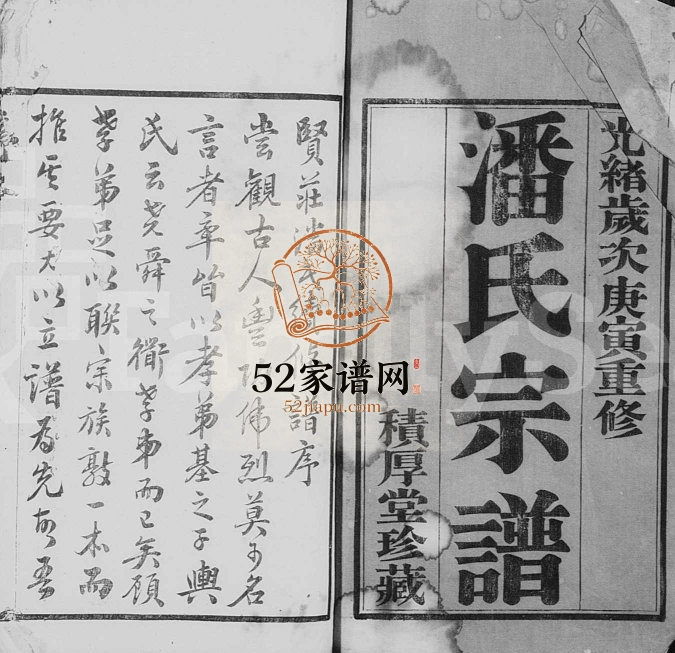 光緒歲次庚寅重修
潘氏宗譜
積厚堂珍藏
賢莊潘氏續修譜序
嘗觀古人豐功偉烈莫可名
言者率皆以孝弟基之子輿
氏云堯舜之衜孝弟而已矣顧
孝弟足以聯宗族敦一本而
推其要大以立譜為先務吾
52家谱网
52jiapu.com